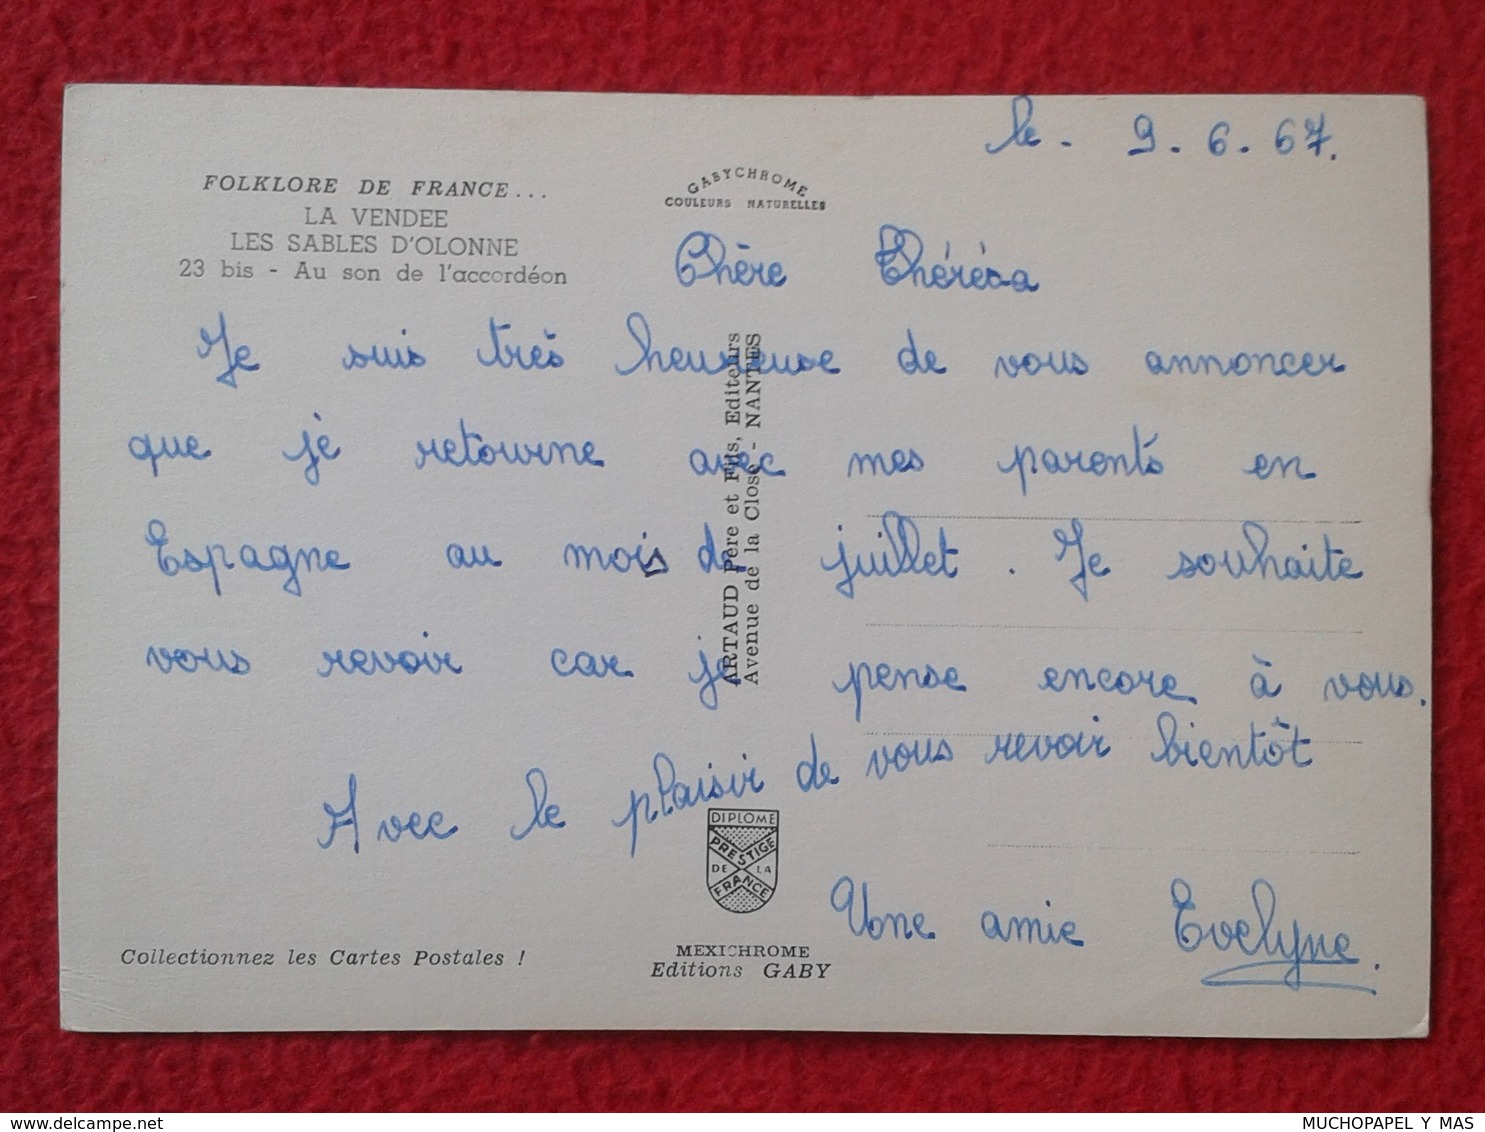 le. 9.6.67.
FOLKLORE DE FRANCE...
LA VENDEE
LES SABLES D'OLONNE
23 bis - Au son de l'accordéon
GABYCHROME
COULEURS NATURELLES
Chère Thérésa
Je suis très heureuse de vous annoncer
que je retourne avec mes parents en
Espagne au mois de juillet. Je souhaite
vous revoir car je pense encore à vous.
Avec le plaisir de vous revoir bientôt
Une amie Evelyne.
ARTAUD Père et Fils, Editeurs
Avenue de la Close - NANTES
DIPLOME
PRESTIGE
DE LA
FRANCE
MEXICHROME
Editions GABY
Collectionnez les Cartes Postales !
MUCHOPAPEL Y MAS
www.delcampe.net